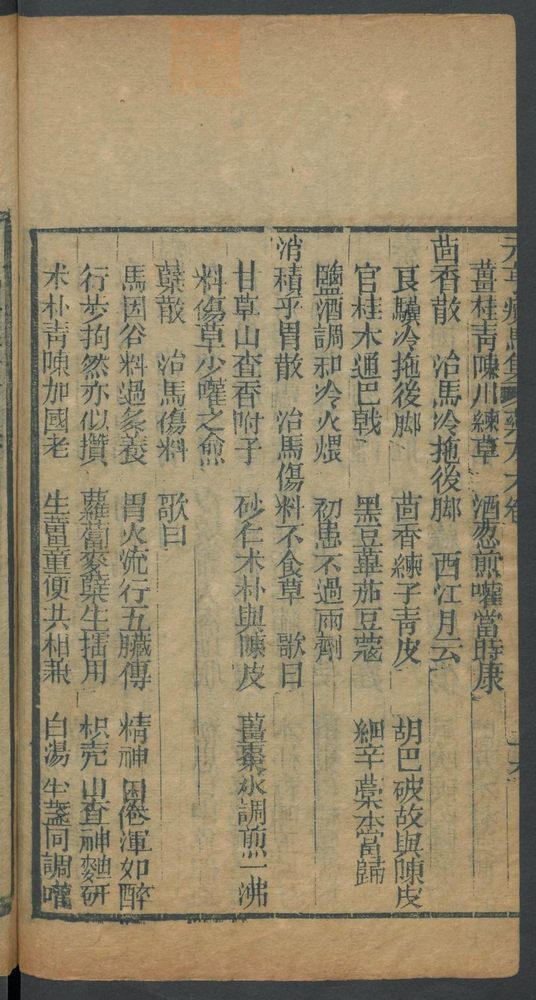 薑桂青陳川練草 酒葱煎嚾當時康
茴香散 治馬冷拖後脚 西江月云
良驥冷拖後脚 茴香練子青皮 胡巴破故與陳皮
官桂木通巴戟 黑豆蓽茄豆蔻 細辛藁本當歸
鹽酒調和冷火煨 初患不過兩劑
消積平胃散 治馬傷料不食草 歌曰
甘草山查香附子 砂仁术朴與陳皮 薑棗水調煎一沸
料傷草少嚾之愈
蘖散 治馬傷料 歌曰
馬因谷料過多養 胃火流行五臟傳 精神困倦渾如醉
行步拘然亦似攢 蘿蔔麥蘖生擂用 枳壳山查神麯研
术朴青陳加國老 生薑童便共相兼 白湯 同調嚾